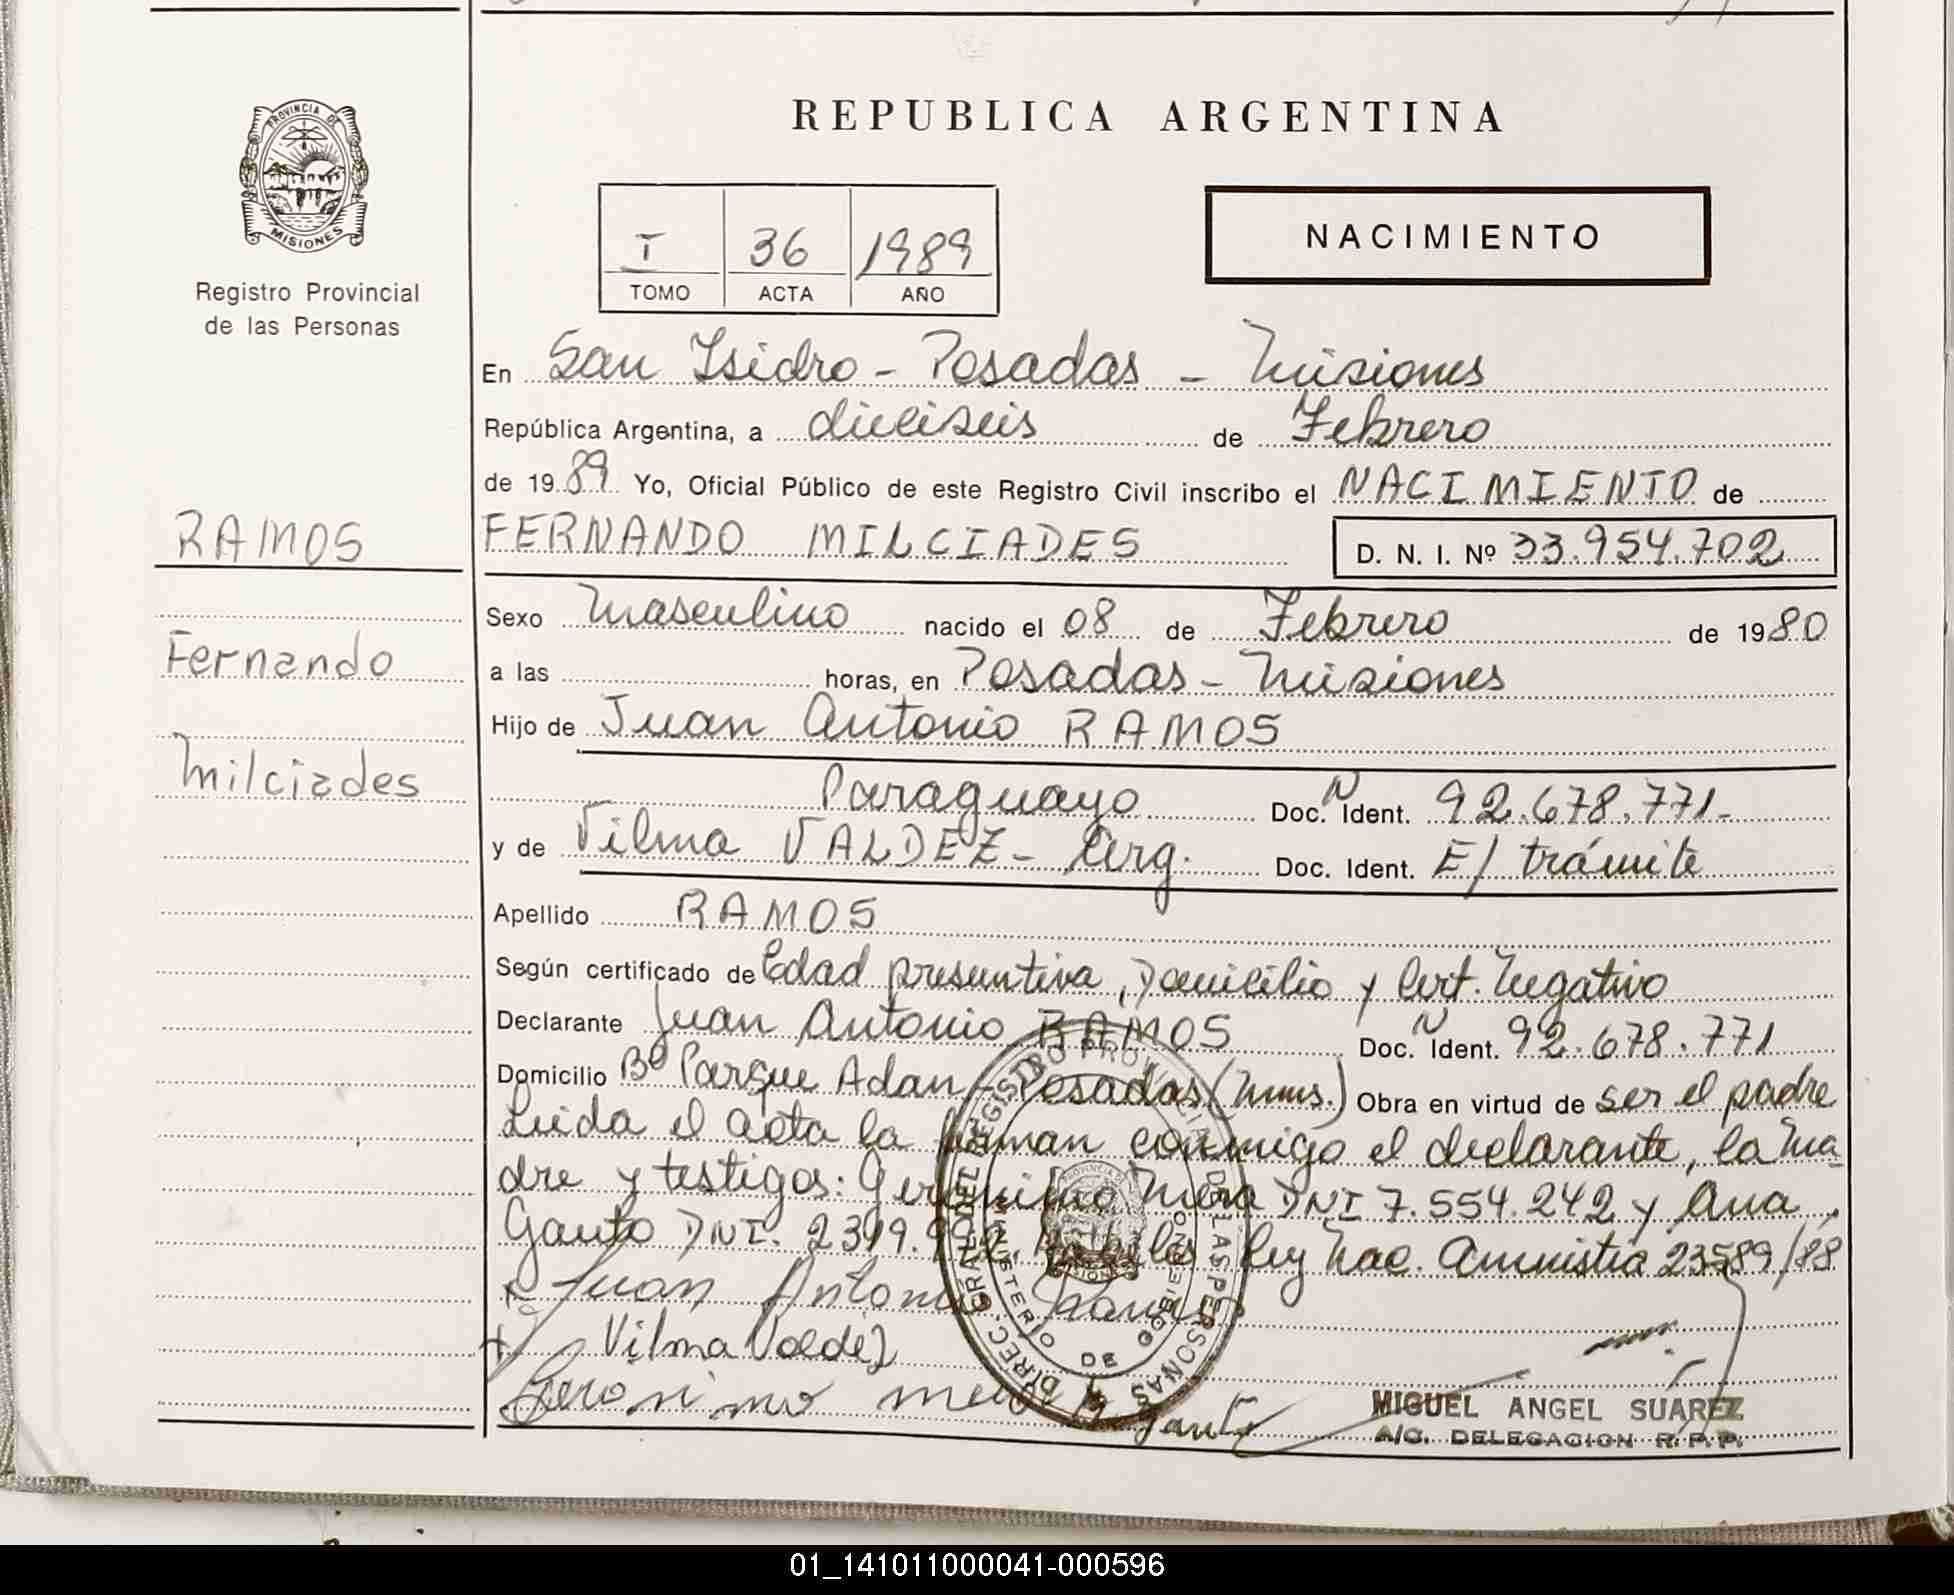 PROVINCIA DE
MISIONES
Registro Provincial
de las Personas
REPUBLICA ARGENTINA
I 36 1989
TOMO ACTA AÑO
NACIMIENTO
En San Isidro - Posadas - Misiones
República Argentina, a dieciseis de Febrero
de 1989 Yo, Oficial Público de este Registro Civil inscribo el NACIMIENTO de
RAMOS
FERNANDO MILCIADES D. N. I. Nº 33.954.702
Sexo Masculino nacido el 08 de Febrero de 1980
Fernando
a las horas, en Posadas - Misiones
Hijo de Juan Antonio RAMOS
Milciades
Paraguayo Doc. N Ident. 92.678.771-
y de Vilma VALDEZ - Arg. Doc. Ident. E/ trámite
Apellido RAMOS
Según certificado de Edad presuntiva, Domicilio y Cert. Negativo
Declarante Juan Antonio RAMOS Doc. N Ident. 92.678.771
Domicilio Bº Parque Adan - Posadas (Mnes.) Obra en virtud de ser el padre
Leida el acta la firman conmigo el declarante, la ma-
dre y testigos: Gerónimo Mera DNI 7.554.242 y Ana
Gauto DNI. Ley Nac. Amnistia 23589/88
Juan Antonio Ramos
Vilma Valdéz
Geronimo
Gauto
DIREC. GRAL. DEL REGISTRO PROVINCIAL DE LAS PERSONAS
MINISTERIO DE GOBIERNO
MISIONES
MIGUEL ANGEL SUAREZ
A/C. DELEGACION R. P. P.
01_141011000041-000596